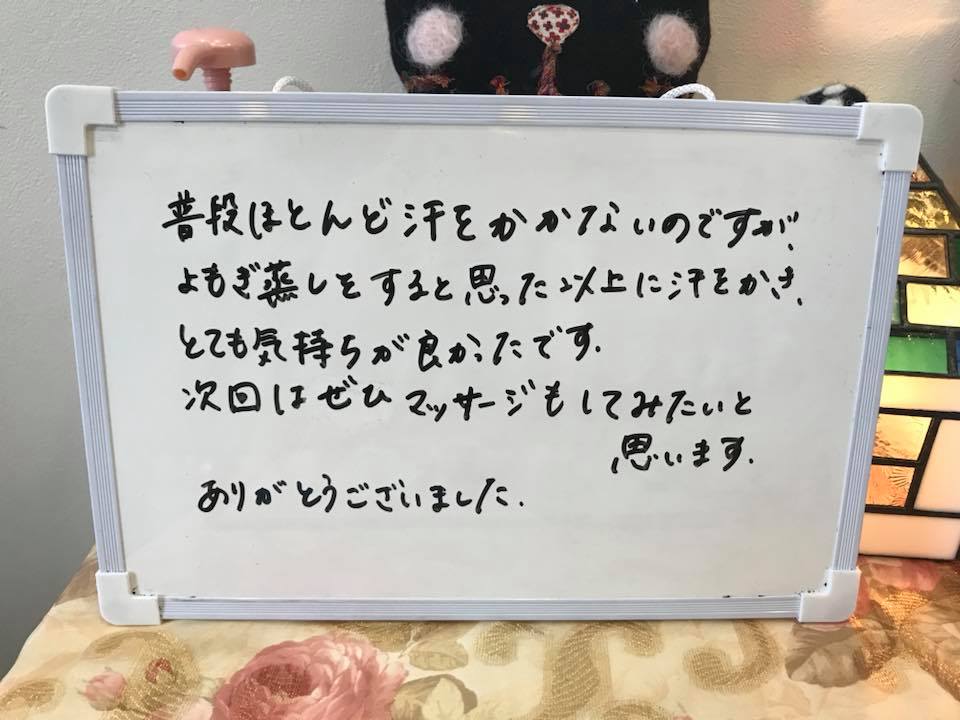 普段ほとんど汗をかかないのですが、
よもぎ蒸しをすると思った以上に汗をかき、
とても気持ちが良かったです.
次回はぜひマッサージもしてみたいと
思います.
ありがとうございました.